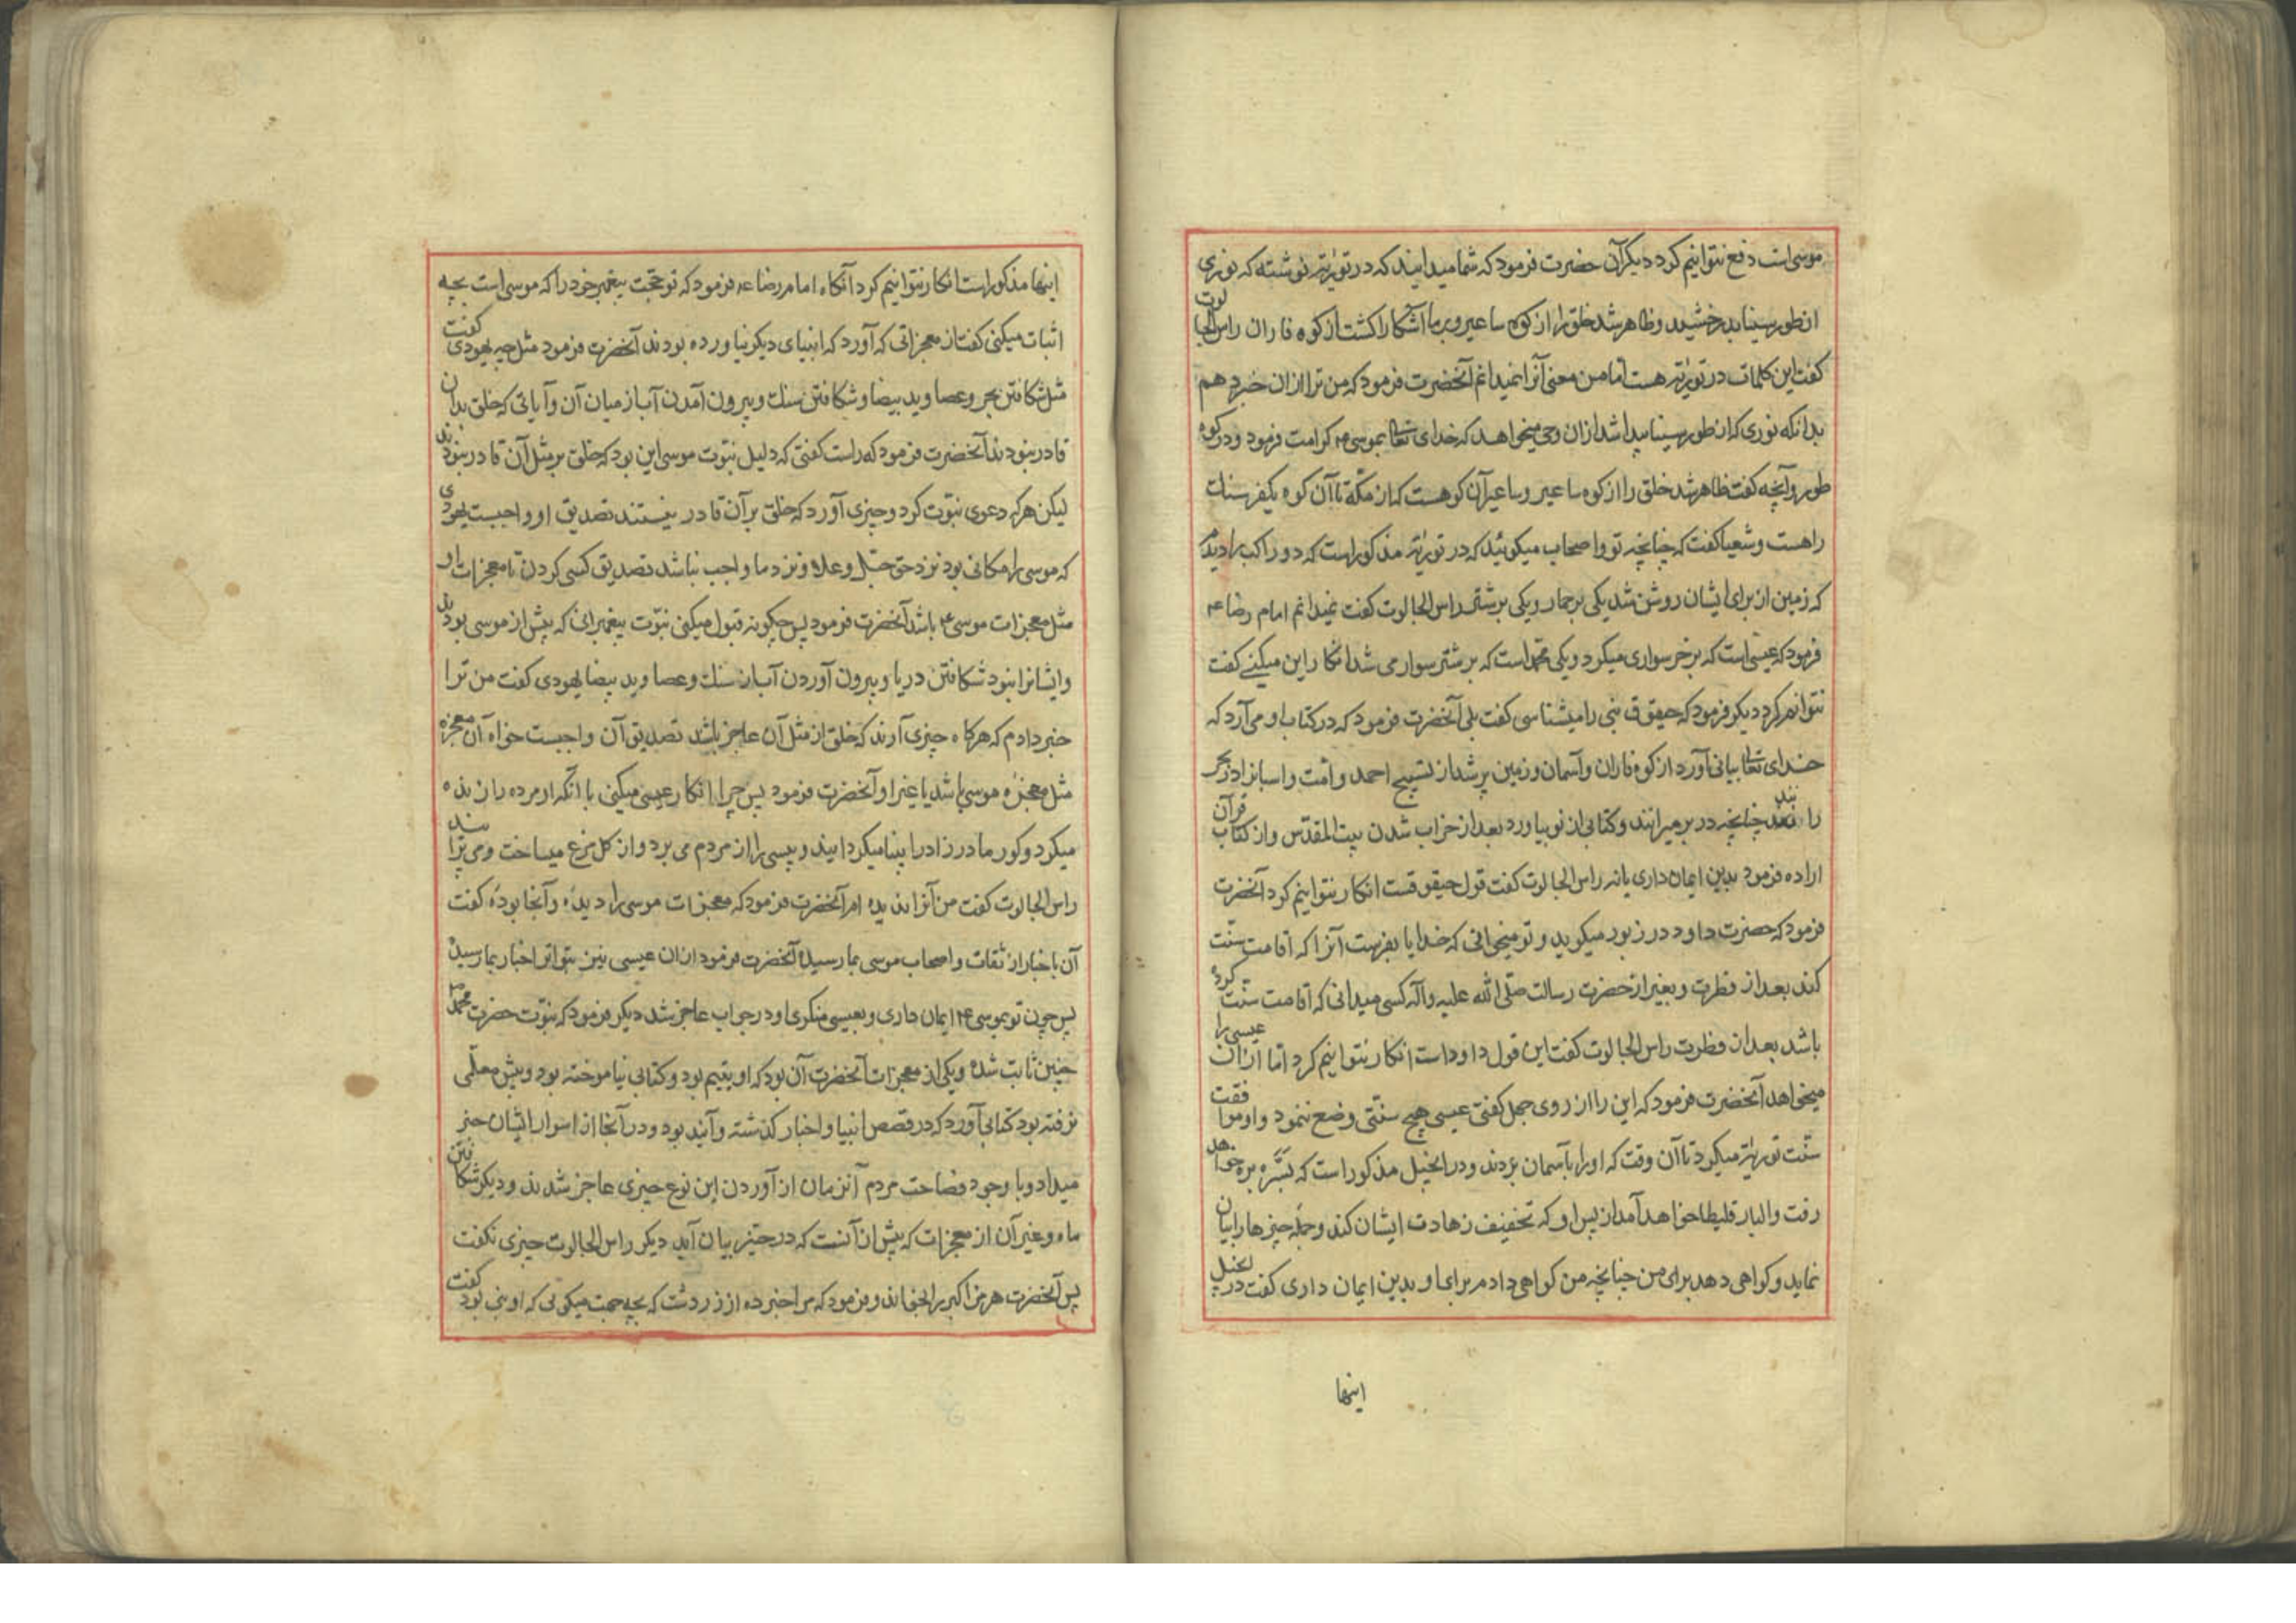 موسی است دفع نتوانیم کرد دیگر آن حضرت فرمود که شما میدانید که در توریة نوشته که نوری
از طور سینا بدرخشید و ظاهر شد خلق را از کوه ساعیر و بر ما آشکارا کشت از کوه فاران راس الجالوت
کفت این کلمات در توریة هست اما من معنی آنرا نمیدانم آنحضرت فرمود که من ترا از ان خبر دهم
بدانکه نوری که از طور سینا پیدا شد از ان وحی میخواهد که خدای تعالی بموسی ۴ کرامت فرمود و در کوه
طور و آنچه کفت ظاهر شد خلق را از کوه ساعیر و ساعیر آن کوهست که از مکّه تا آن کوه یکفرسنک
راهست و شعیا کفت که چنانچه تو و اصحاب میکوئید که در توریة مذکور است که دو راکب را دیدم
که زمین از برای ایشان روشن شد یکی بر حمار و یکی بر شتر راس الجالوت کفت نمیدانم امام رضا ۴
فرمود که عیسی است که بر خر سواری میکرد و یکی محمد است که بر شتر سوار می شد انکار این میکنے کفت
نتوانم کرد دیکر فرمود که حیقوق نبی را میشناسی کفت بلی آنحضرت فرمود که در کتاب او می آرد که
خدای تعالی بیانی آورد از کوه فاران و آسمان و زمین پر شد از تسبیح احمد و امت و اسبانرا در بحر
را نند چنانچه در بر میرانند و کتابی از نو بیاورد بعد از خراب شدن بیت المقدّس و از کتاب قرآن
اراده فرمود بدین ایمان داری یا نه راس الجالوت کفت قول حیقوقست انکار نتوانیم کرد آنحضرت
فرمود که حضرت داود در زبور میکوید و تو میخوانی که خدایا بفرست آنرا که اقامت سنّت
کند بعد از فطرت و بغیر از حضرت رسالت صلّی الله علیه وآله کسی میدانی که اقامت سنّت کرده
باشد بعد از فطرت راس الجالوت کفت این قول داود است انکار نتوانیم کرد اما از ان عیسی را
میخواهد آنحضرت فرمود که این را از روی جهل کفتی عیسی هیچ سنّتی وضع ننمود و او موافقت
سنّت توریة میکرد تا آن وقت که او را بآسمان بردند و در انجیل مذکور است که پسر بره خواهد
رفت و البارقلیطا خواهد آمد از پس او که تخفیف زهادت ایشان کند و جمله چیزها را بیان
نماید و کواهی دهد برای من چنانچه من کواهی دادم برای او بدین ایمان داری کفت در انجیل
اینها
اینها مذکور است انکار نتوانیم کرد آنکاه امام رضا ۴ فرمود که تو حجّت پیغمبر خود را که موسی است بچه
اثبات میکنی کفت از معجزاتی که آورد که انبیای دیکر نیاورده بودند آنحضرت فرمود مثل چه یهودی کفت
مثل شکافتن بحر و عصا و ید بیضا و شکافتن سنک و بیرون آمدن آب از میان آن و آیاتی که خلق بدان
قادر نبودند آنحضرت فرمود که راست کفتی که دلیل نبّوت موسی این بود که خلق بر مثل آن قادر نبودند
لیکن هر که دعوی نبّوت کرد و چیزی آورد که خلق بر آن قادر نیستند تصدیق او واجبست یهودی
که موسی را مکانی بود نزد حق جلّ و علا و نزد ما واجب نباشد تصدیق کسی کردن تا معجزات او
مثل معجزات موسی ۴ باشد آنحضرت فرمود پس چکونه قبول میکنی نبّوت پیغمبرانی که پیش از موسی بودند
و ایشانرا نبود شکافتن دریا و بیرون آوردن آب از سنک و عصا و ید بیضا یهودی کفت من ترا
خبر دادم که هرکاه چیزی آرند که خلق از مثل آن عاجز باشد تصدیق آن واجبست خواه آن معجزه
مثل معجزه موسی باشد یا غیر او آنحضرت فرمود پس چرا انکار عیسی میکنی با آنکه او مرده را زنده
میکرد و کور مادرزاد را بینا میکردانید و پیسی را از مردم می برد و از کل مرغ میساخت و می پرانید
راس الجالوت کفت من آنرا ندیده ام آنحضرت فرمود که معجزات موسی را دیدهٔ و آنجا بودهٔ کفت
آن باخبار از ثقات و اصحاب موسی بما رسیده آنحضرت فرمود از ان عیسی نیز بتواتر اخبار بما رسیده
پس چون تو بموسی ۴ ایمان داری و بعیسی منکری او در جواب عاجز شد دیکر فرمود که نبّوت حضرت محمد ۴
چنین ثابت شده و یکی از معجزات آنحضرت آن بود که او یتیم بود و کتابی نیاموخته بود و پیش معلّمی
نرفته بود کتابی آورد که در قصص انبیا و اخبار کذشته و آینده بود و در آنجا از اسرار ایشان خبر
میداد و با وجود فصاحت مردم آنزمان از آوردن این نوع چیزی عاجز شدند و دیکر شکافتن
ماه و غیر آن از معجزات که بیش از آنست که در حیّز بیان آید دیکر راس الجالوت چیزی نکفت
پس آنحضرت هرمز اکبر را بخواند و فرمود که مرا خبر ده از زردشت که بچه حجت میکوئی که او نبی بود کفت